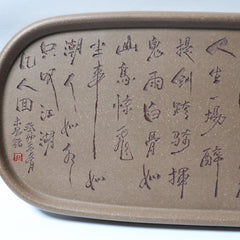 人生一場醉
提剑跨骑揮
鬼雨白骨如
山鳥惊飛
尘事如
潮人如水
只叹江湖
几人回